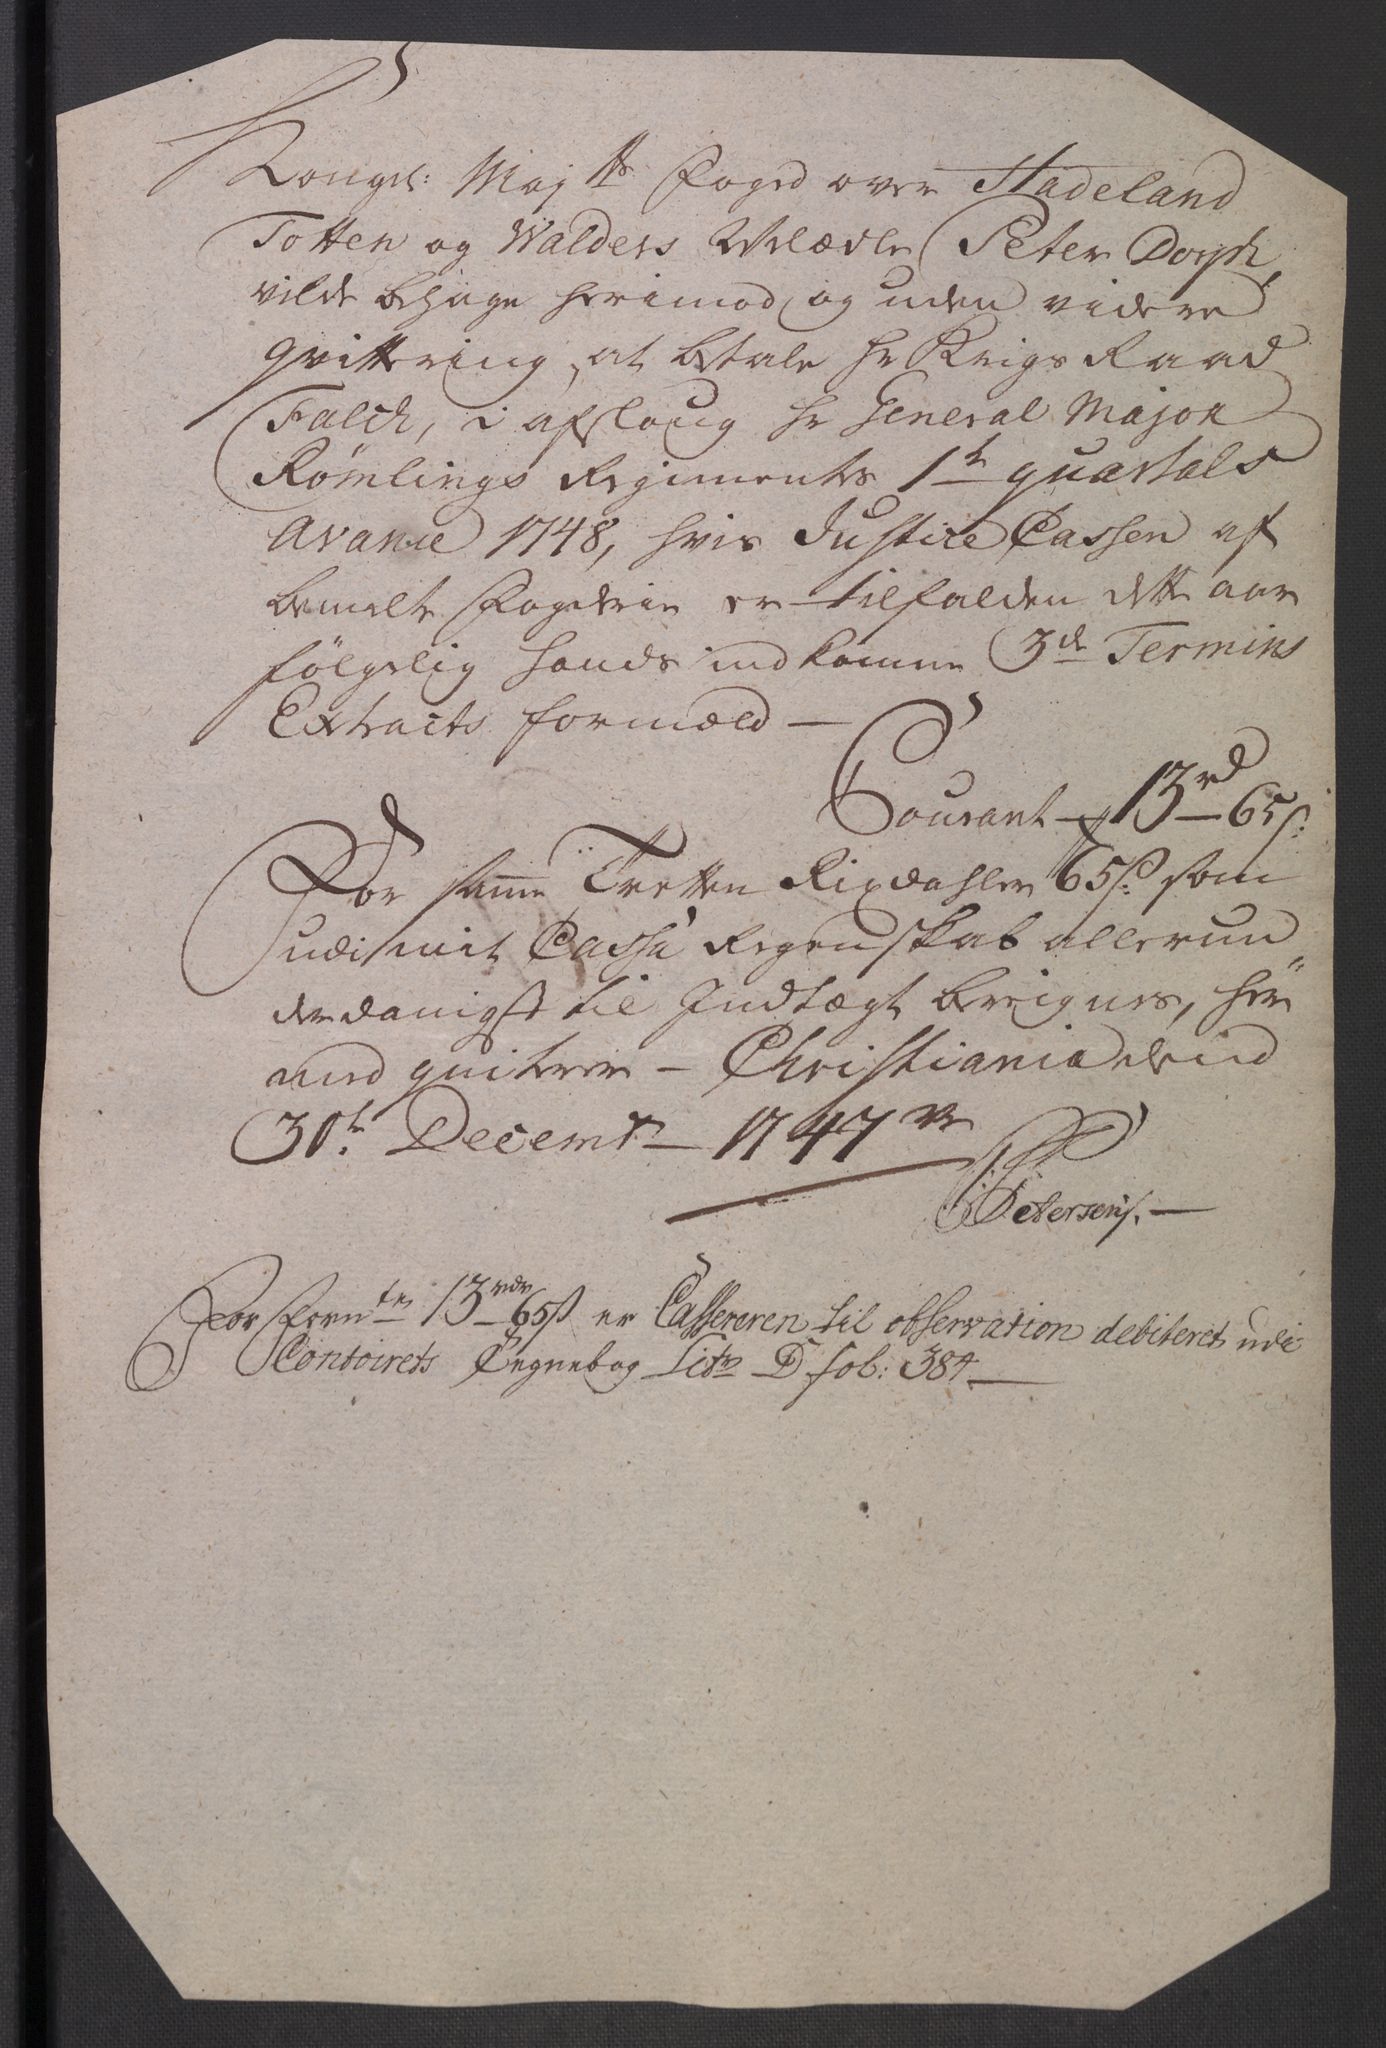 Kongel: Maj<sup>ts</sup> Foged over Hadeland
Totten og Walders Velædle Peter Dorph,
vilde behage herimod, og uden videre
qvittering, at betale Hr Krigs Raad
Falch, i afslaug Hr General Major
Römlings Regiments 1<sup>te</sup> quartals
Avance 1748, hvis Justice Cassen af
bemelte Fogderie er tilfalden dette aar
fölgelig hands indkomne 3<sup>de</sup> Termins
Extracts formæld —
Courant — 13 rd — 65 s:
For samme Tretten Rixdahler 65 s: som
udi mit Cassa Regenskab allerun"
derdanigst til Indtægt bereignes, her
med quiterer — Christiania dend
30<sup>te</sup> Decembr 1747
Petersen
For forn<sup>te</sup> 13 rdr 65 s er Cassereren til observation debiteret udi
Contoirets Tegnebog Litr D fol: 384